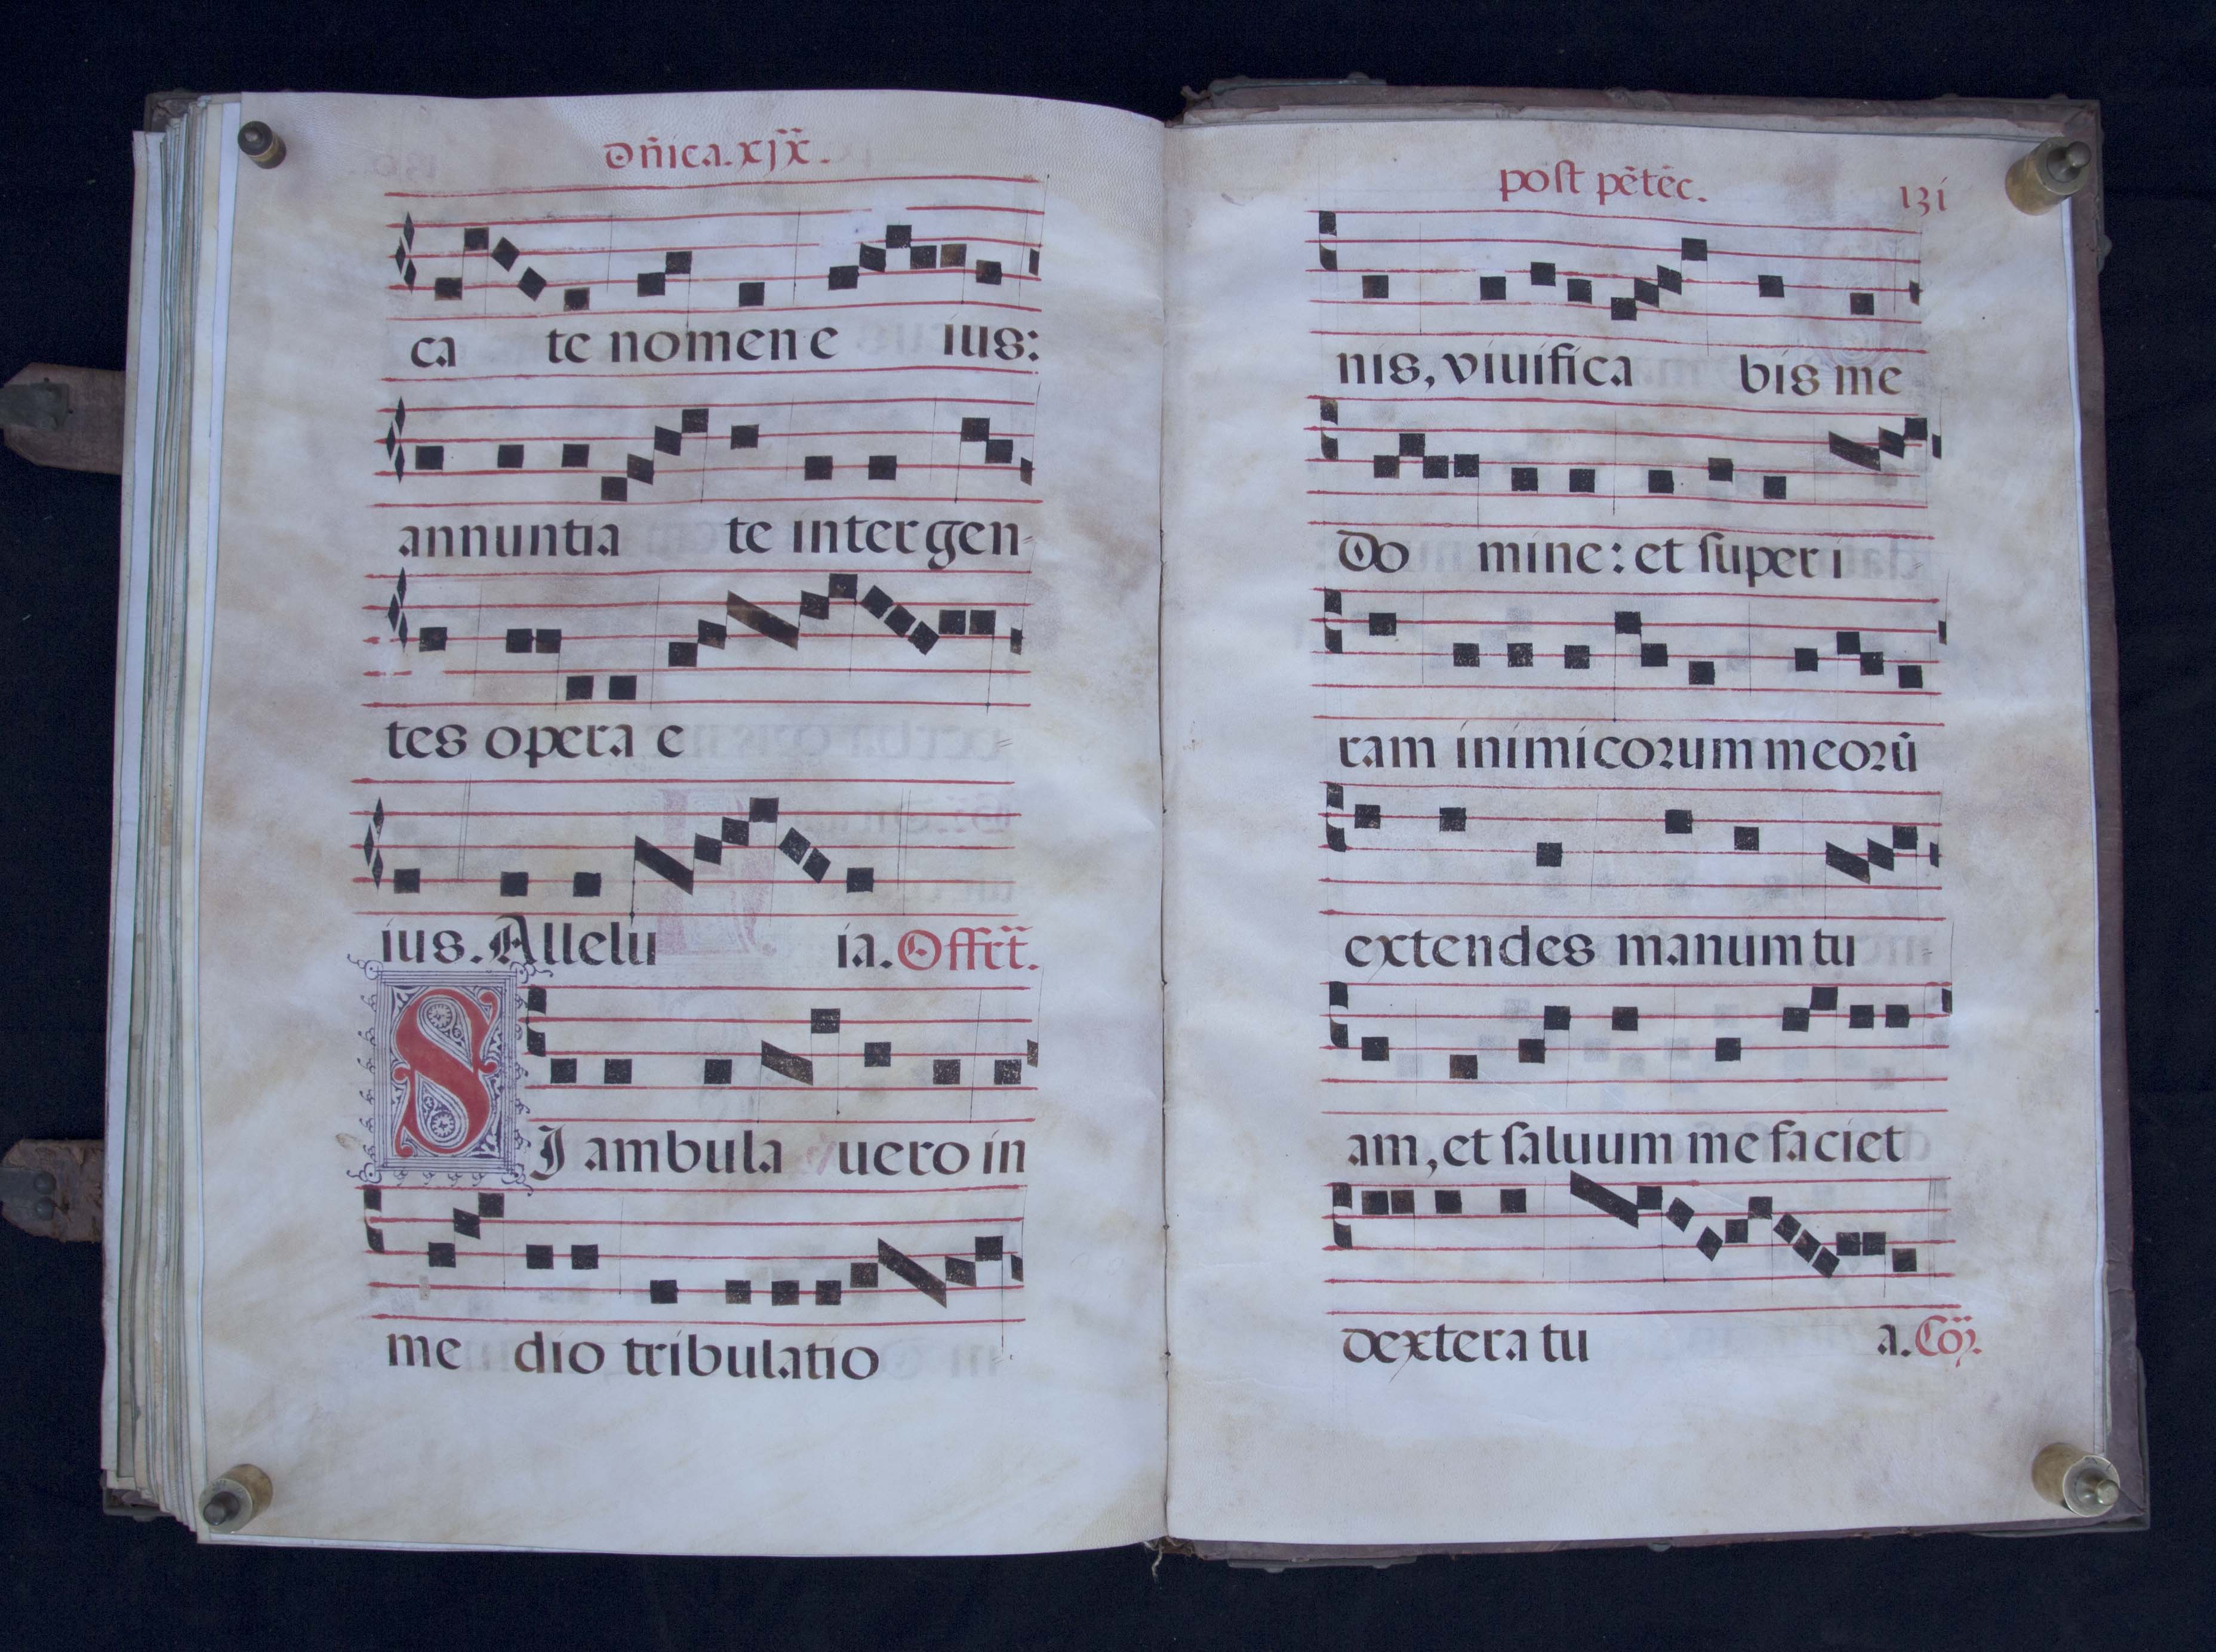 Dn̄ica. xjx̄.
ca te nomen e ius:
annuntia te inter gen-
tes opera e
ius. Allelu ia. Offr̄t.
SJ ambula uero in
me dio tribulatio
post pētēc. 131
nis, viuifica bis me
Do mine: et super i
ram inimicorum meorū
extendes manum tu
am, et saluum me faciet
dextera tu a. Cōȷ.